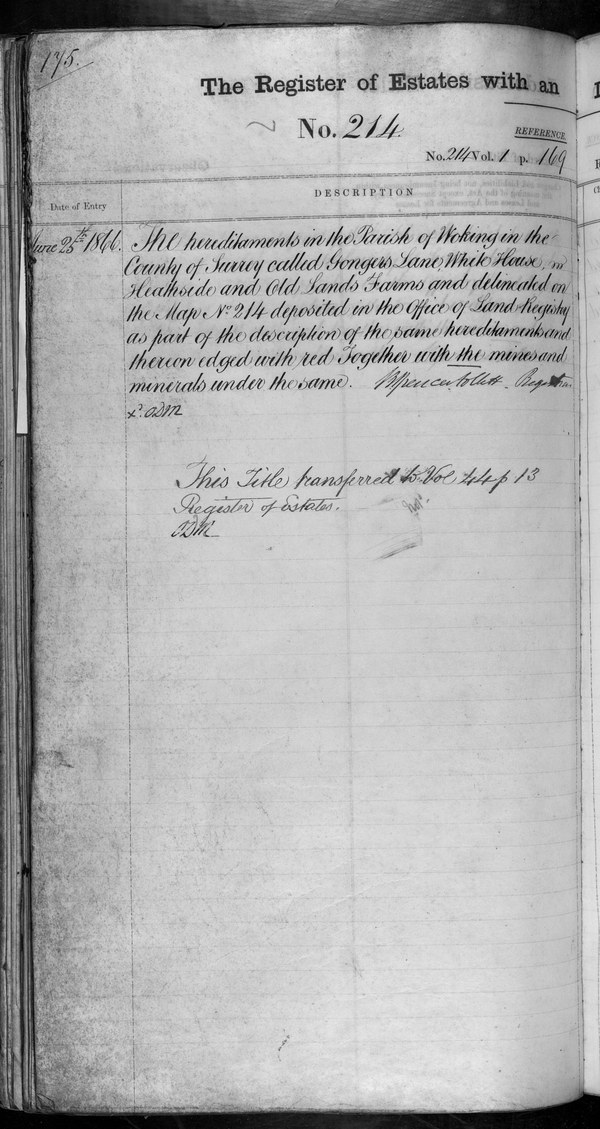 175.
The Register of Estates with an
No. 214
REFERENCE
No. 214 Vol. 1 p. 169
Date of Entry
DESCRIPTION
June 25th 1866.
The hereditaments in the Parish of Woking in the
County of Surrey called Gongers Lane, White House,
Heathside and Old Lands Farms and delineated on
the Map No 214 deposited in the Office of Land Registry
as part of the description of the same hereditaments and
thereon edged with red Together with the mines and
minerals under the same. Registrar
This Title transferred to Vol 44 p 13
Register of Estates.